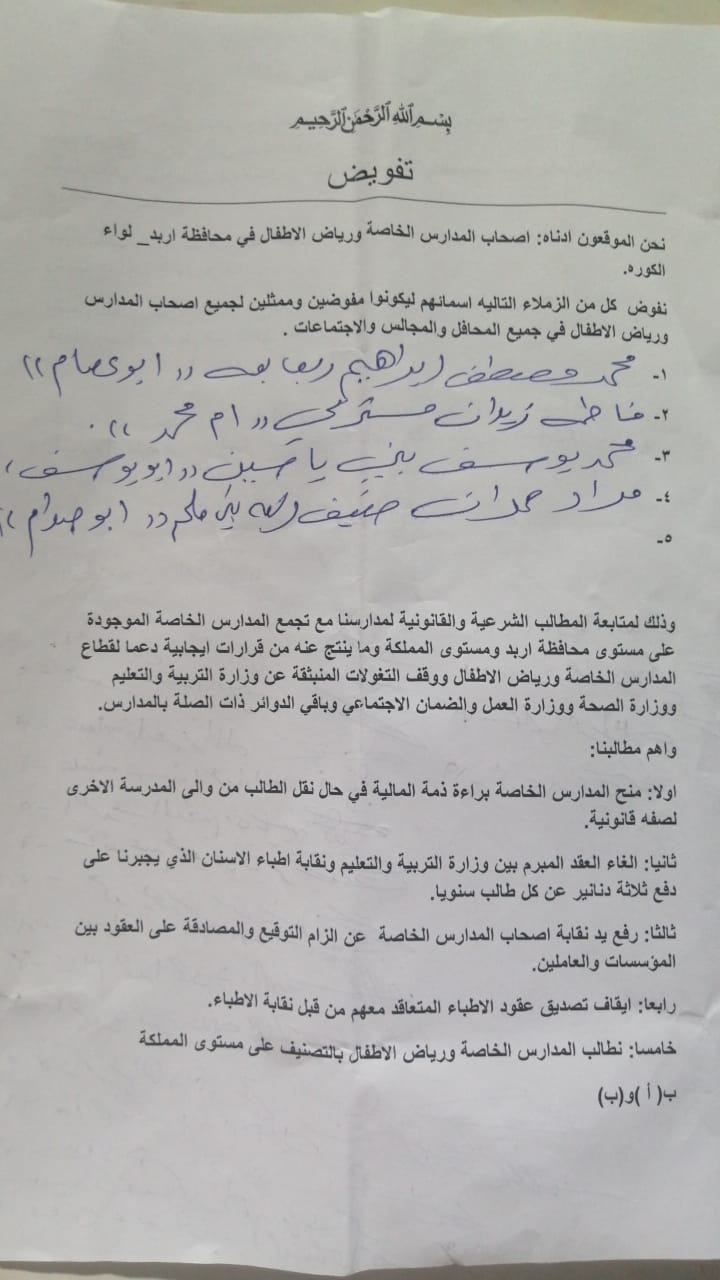 بسم الله الرحمن الرحيم
تفويض
نحن الموقعون ادناه: اصحاب المدارس الخاصة ورياض الاطفال في محافظة اربد_ لواء
الكوره.
نفوض كل من الزملاء التاليه اسمائهم ليكونوا مفوضين وممثلين لجميع اصحاب المدارس
ورياض الاطفال في جميع المحافل والمجالس والاجتماعات .
١- محمد مصطفى ابراهيم ربابعه "ابو عصام"
٢- فاطمه زيدان "ام محمد".
٣- محمد يوسف بني ياسين "ابو يوسف"
٤- مراد حمدان بني ملحم "ابو صدام"
٥-
وذلك لمتابعة المطالب الشرعية والقانونية لمدارسنا مع تجمع المدارس الخاصة الموجودة
على مستوى محافظة اربد ومستوى المملكة وما ينتج عنه من قرارات ايجابية دعما لقطاع
المدارس الخاصة ورياض الاطفال ووقف التغولات المنبثقة عن وزارة التربية والتعليم
ووزارة الصحة ووزارة العمل والضمان الاجتماعي وباقي الدوائر ذات الصلة بالمدارس.
واهم مطالبنا:
اولا: منح المدارس الخاصة براءة ذمة المالية في حال نقل الطالب من والى المدرسة الاخرى
لصفه قانونية.
ثانيا: الغاء العقد المبرم بين وزارة التربية والتعليم ونقابة اطباء الاسنان الذي يجبرنا على
دفع ثلاثة دنانير عن كل طالب سنويا.
ثالثا: رفع يد نقابة اصحاب المدارس الخاصة عن الزام التوقيع والمصادقة على العقود بين
المؤسسات والعاملين.
رابعا: ايقاف تصديق عقود الاطباء المتعاقد معهم من قبل نقابة الاطباء.
خامسا: نطالب المدارس الخاصة ورياض الاطفال بالتصنيف على مستوى المملكة
ب( أ )و(ب)